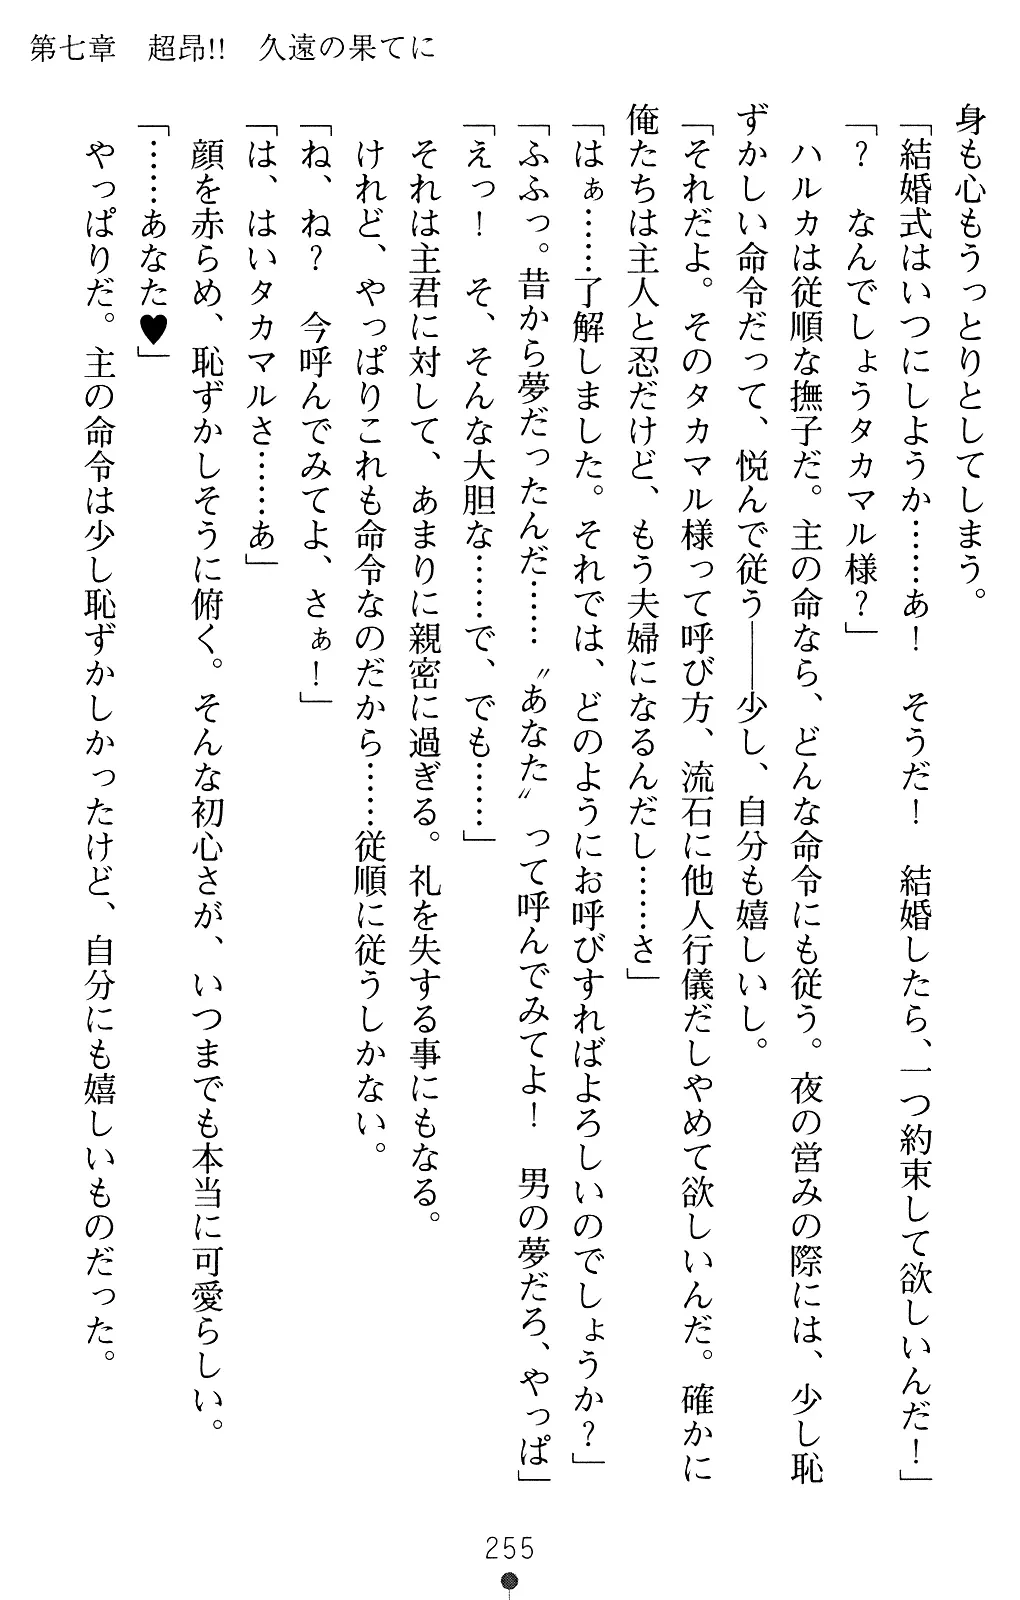 第七章　超昂!!　久遠の果てに
身も心もうっとりとしてしまう。
「結婚式はいつにしようか……あ！　そうだ！　結婚したら、一つ約束して欲しいんだ！」
「？　なんでしょうタカマル様？」
　ハルカは従順な撫子だ。主の命なら、どんな命令にも従う。夜の営みの際には、少し恥
ずかしい命令だって、悦んで従う――少し、自分も嬉しいし。
「それだよ。そのタカマル様って呼び方、流石に他人行儀だしやめて欲しいんだ。確かに
俺たちは主人と忍だけど、もう夫婦になるんだし……さ」
「はぁ……了解しました。それでは、どのようにお呼びすればよろしいのでしょうか？」
「ふふっ。昔から夢だったんだ……〝あなた〟って呼んでみてよ！　男の夢だろ、やっぱ」
「えっ！　そ、そんな大胆な……で、でも……」
　それは主君に対して、あまりに親密に過ぎる。礼を失する事にもなる。
　けれど、やっぱりこれも命令なのだから……従順に従うしかない。
「ね、ね？　今呼んでみてよ、さぁ！」
「は、はいタカマルさ……あ」
　顔を赤らめ、恥ずかしそうに俯く。そんな初心さが、いつまでも本当に可愛らしい。
「……あなた♥」
　やっぱりだ。主の命令は少し恥ずかしかったけど、自分にも嬉しいものだった。
255